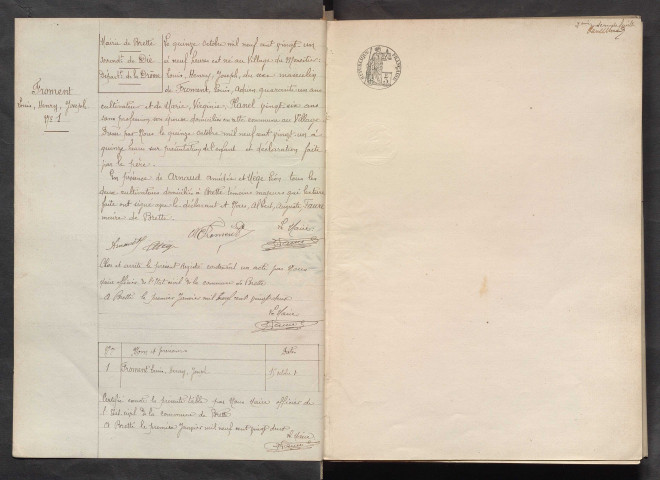 Froment
Louis, Henry, Joseph
N° 1
Mairie de Brette
Arrondt de Die
Départt de la Drôme
Le quinze octobre mil neuf cent vingt un
à neuf heures est né au Village du
Louis, Henry, Joseph, du sexe masculin
de Froment, Louis, Adrien quarante un ans
cultivateur et de Marie, Virginie Planel vingt six ans
sans profession, son épouse domiciliés en cette commune au Village
Dressé par Nous le quinze octobre mil neuf cent vingt un à
quinze heures sur présentation de l'enfant et déclaration faite
par le père.
En présence de Arnaud Amédée et Mège tous les
deux cultivateurs domiciliés à Brette témoins majeurs qui lecture
faite ont signé avec le déclarant et Nous, Albert, Auguste Faure
maire de Brette.
Le Maire
Froment
Clos et arrêté le présent Registre contenant un acte par Nous
maire officier de l'Etat civil de la commune de Brette
A Brette le premier Janvier mil neuf cent vingt deux
Le Maire
Nos
Noms et prénoms
Date
1
Froment Louis, Henry, Joseph
15 octobre
Certifié exacte la présente table par Nous Maire officier de
l'Etat civil de la commune de Brette
A Brette le premier Janvier mil neuf cent vingt deux
Le Maire